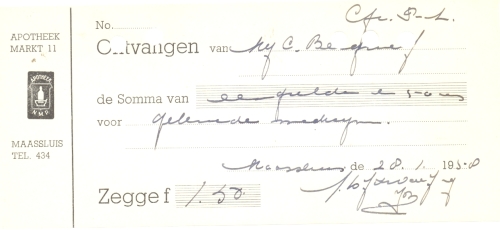 APOTHEEK
MARKT 11
APOTHEEK
N.M.P.
MAASSLUIS
TEL. 434
No.
Ontvangen van Mej C.
de Somma van een gulden en 50 cts
voor geleverde medicijn.
Maassluis de 28. 1. 1958
Zegge f 1.50